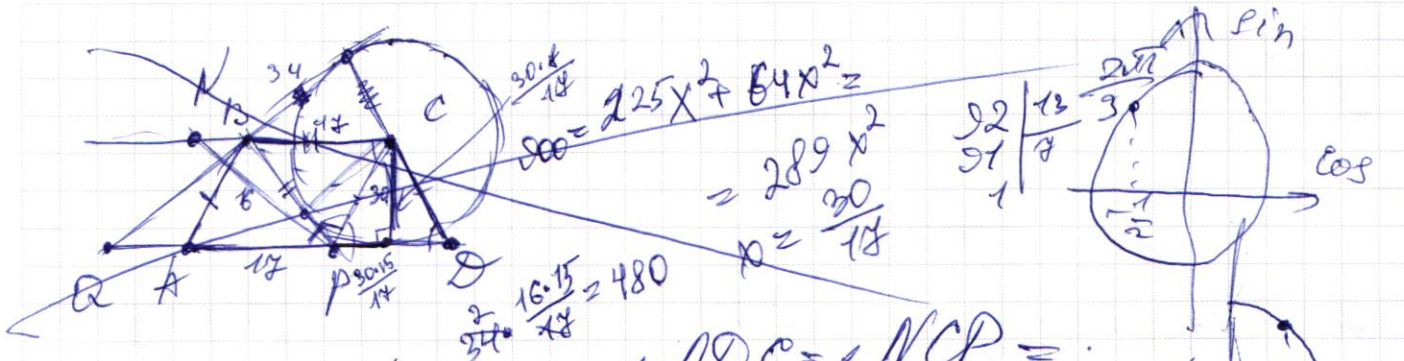 N
B
34
17
C
30·8/17
6
30
Q
A
17
P
30·15/17
D
900 = 225x² + 64x² =
= 289x²
x = 30/17
34 · 16·15/17 = 480
2
92 | 13
91 | 7
1
2π/3
sin
cos
-1/2
∠DC = ∠NCP =